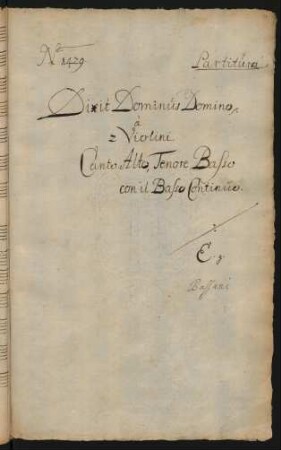 No 1479
Partitura
Dixit Dominus Domino.
à
2 Violini
Canto Alto, Tenore Basso
con il Basso Continuo.
E.
Bassani